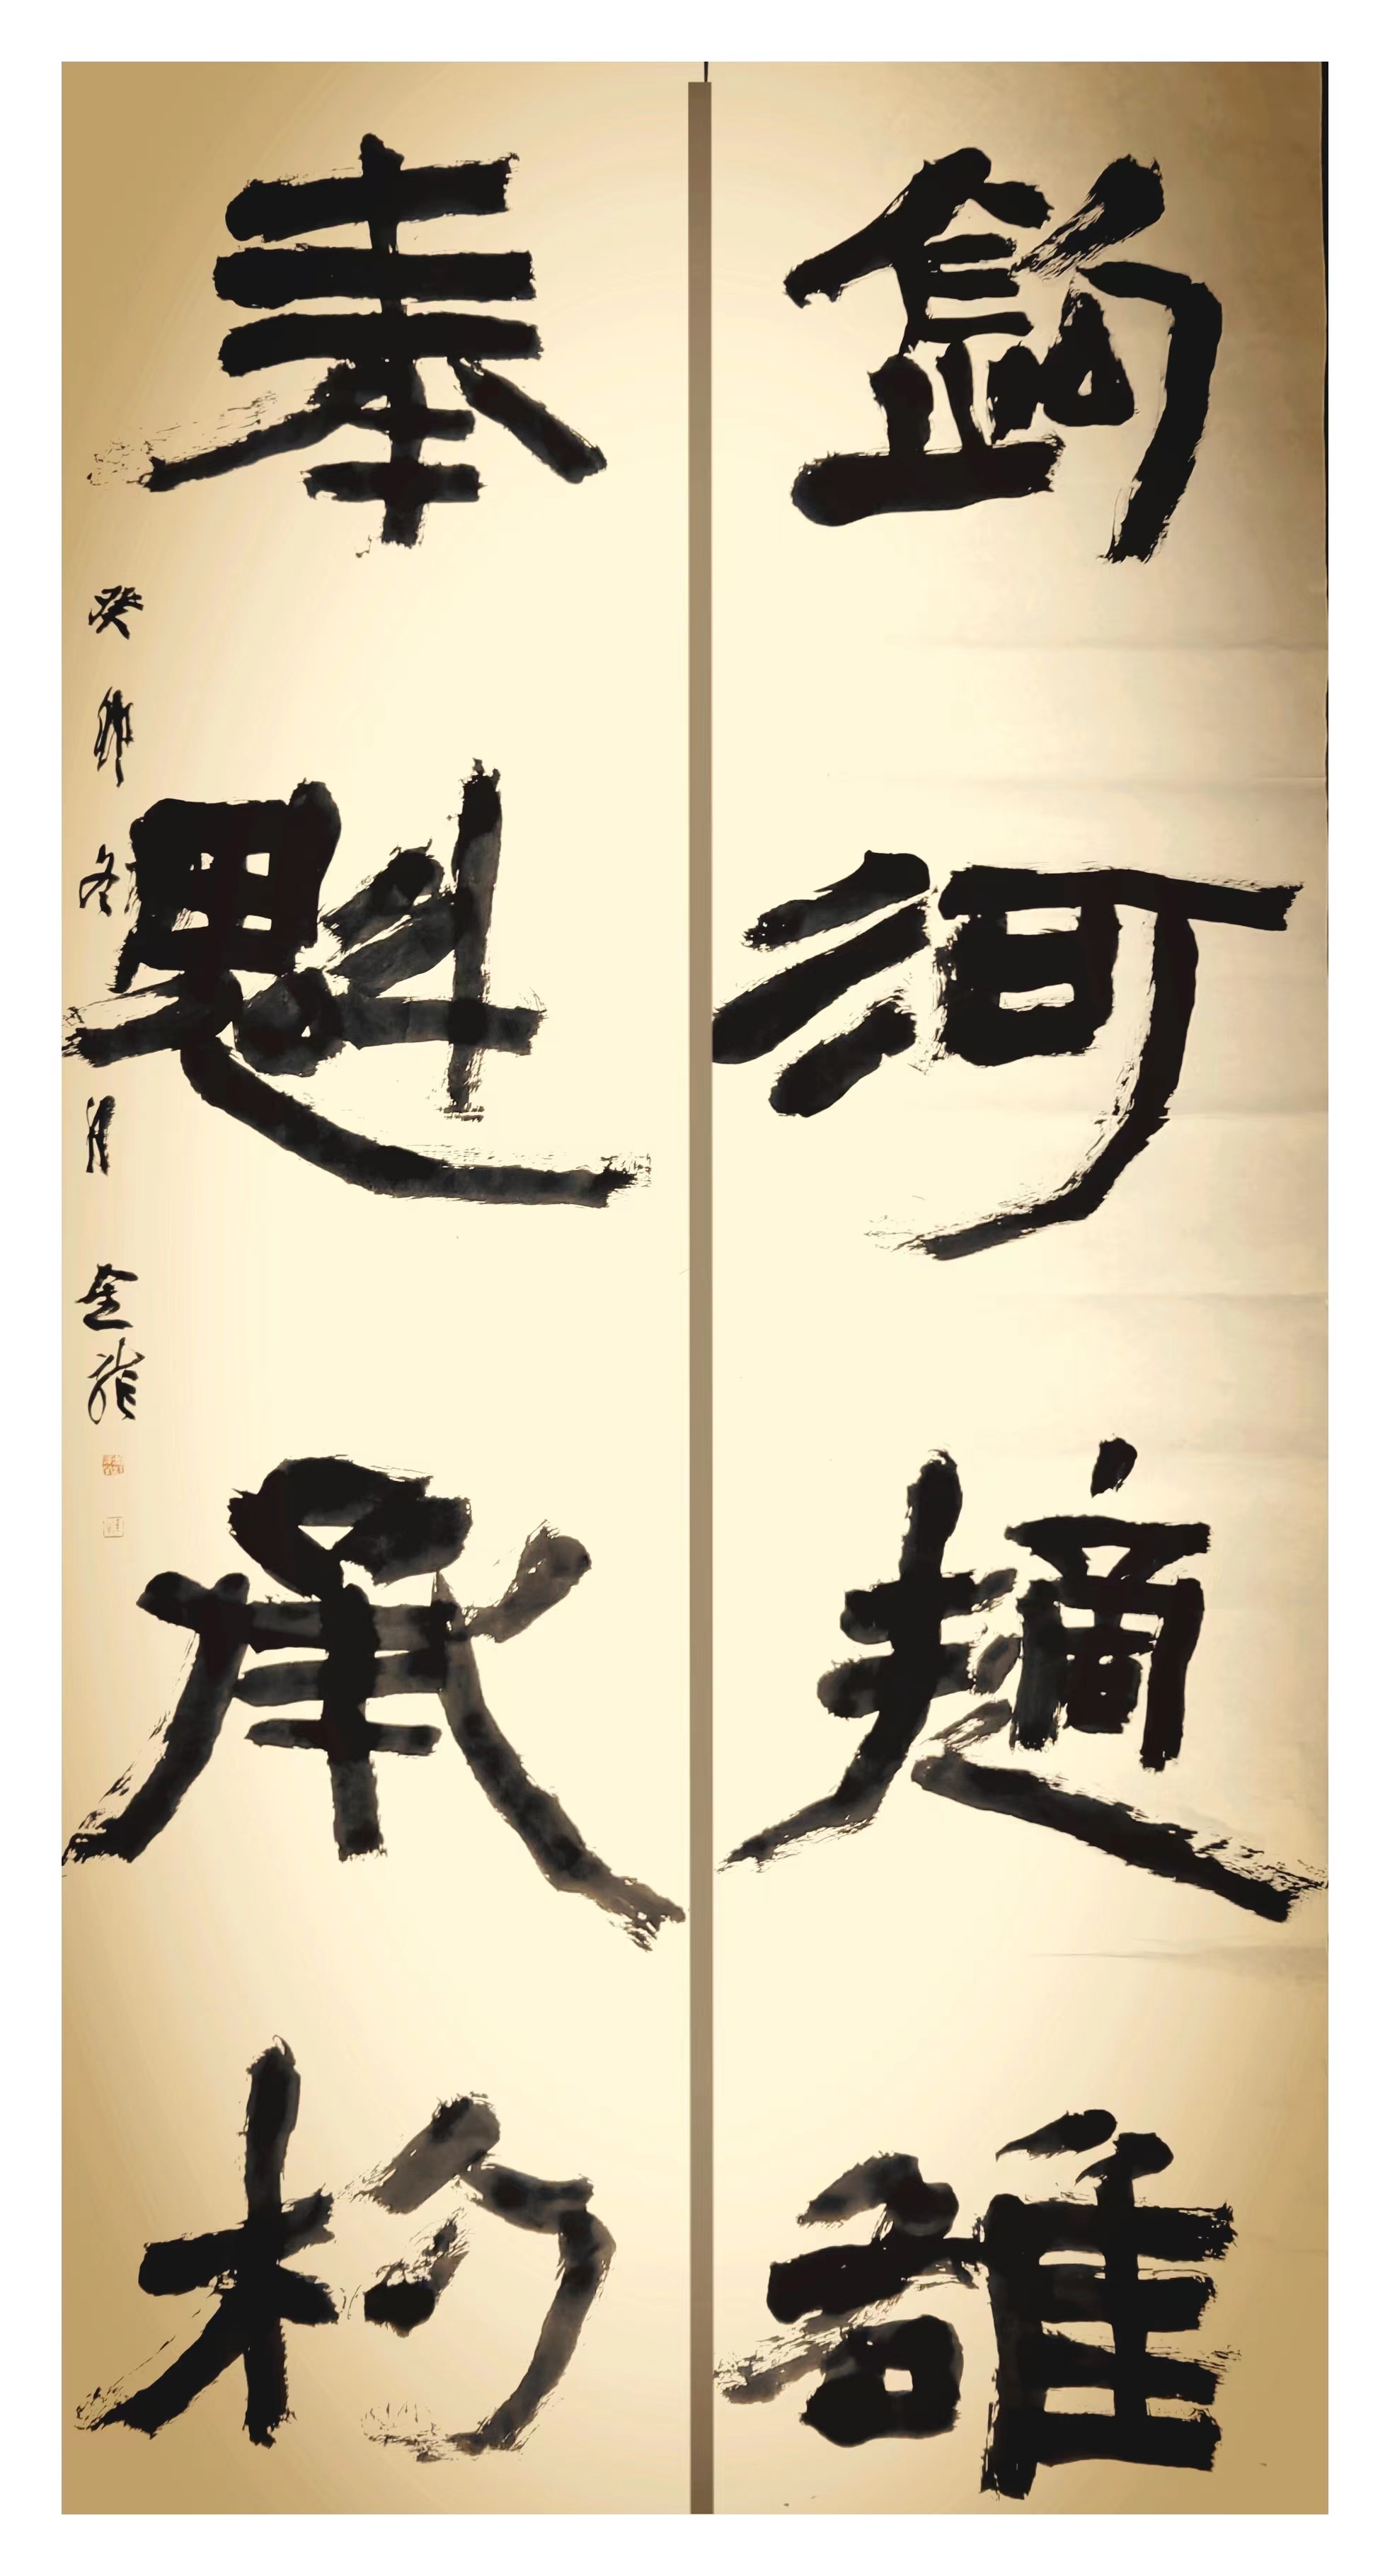 鈎河擿雒
奉魁承杓
癸卯冬月金龍